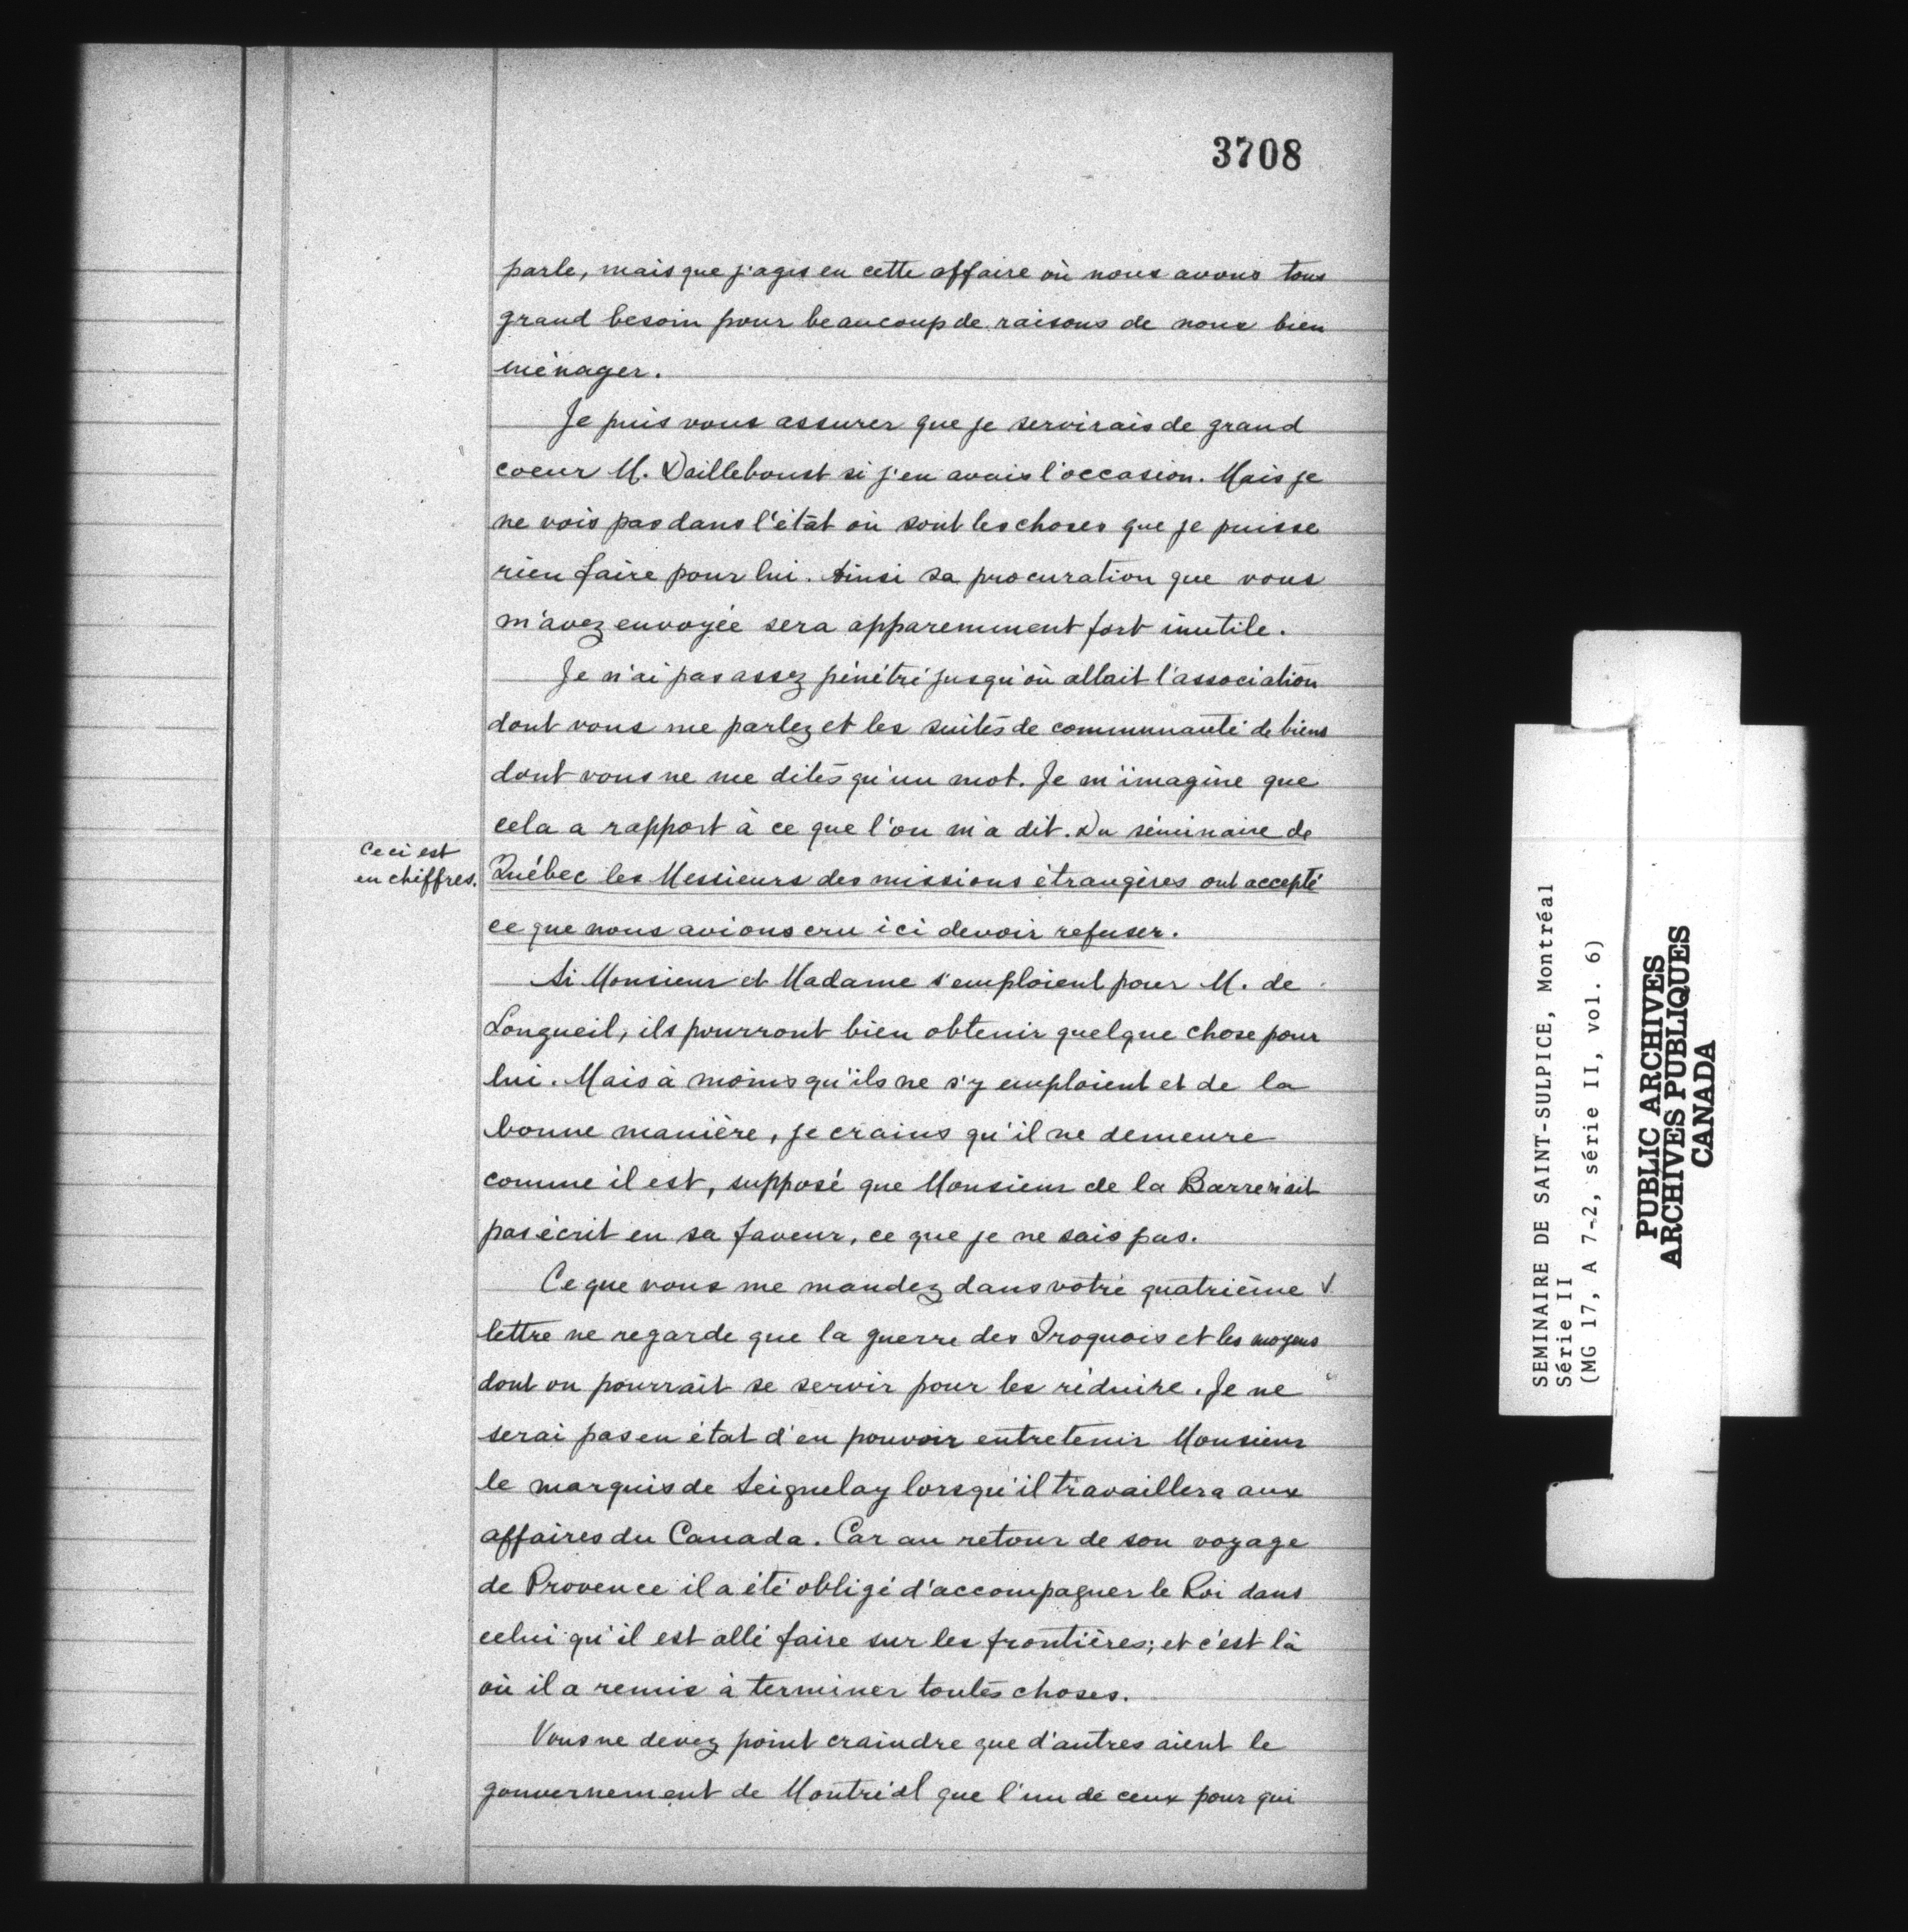 3708
parle, mais que j'agis en cette affaire où nous avons tous
grand besoin pour beaucoup de raisons de nous bien
ménager.
Je puis vous assurer que je servirais de grand
coeur M. Dailleboust si j'en avais l'occasion. Mais je
ne vois pas dans l'état où sont les choses que je puisse
rien faire pour lui. Ainsi sa procuration que vous
m'avez envoyée sera apparemment fort inutile.
Je n'ai pas assez pénétré jusqu'où allait l'association
dont vous me parlez et les suites de communauté de biens
dont vous ne me dites qu'un mot. Je m'imagine que
cela a rapport à ce que l'on m'a dit. Du séminaire de
Ceci est
en chiffres.
Québec les Messieurs des missions étrangères ont accepté
ce que nous avions cru ici devoir refuser.
Si Monsieur et Madame s'emploient pour M. de
Longueil, ils pourront bien obtenir quelque chose pour
lui. Mais à moins qu'ils ne s'y emploient et de la
bonne manière, je crains qu'il ne demeure
comme il est, supposé que Monsieur de la Barre n'ait
pas écrit en sa faveur, ce que je ne sais pas.
Ce que vous me mandez dans votre quatrième √
lettre ne regarde que la guerre des Iroquois et les moyens
dont on pourrait se servir pour les réduire. Je ne
serai pas en état d'en pouvoir entretenir Monsieur
le marquis de Seignelay lorsqu'il travaillera aux
affaires du Canada. Car au retour de son voyage
de Provence il a été obligé d'accompagner le Roi dans
celui qu'il est allé faire sur les frontières; et c'est là
où il a remis à terminer toutes choses.
Vous ne devez point craindre que d'autres aient le
gouvernement de Montréal que l'un de ceux pour qui
SEMINAIRE DE SAINT-SULPICE, Montréal
Série II
(MG 17, A 7-2, série II, vol. 6)
PUBLIC ARCHIVES
ARCHIVES PUBLIQUES
CANADA